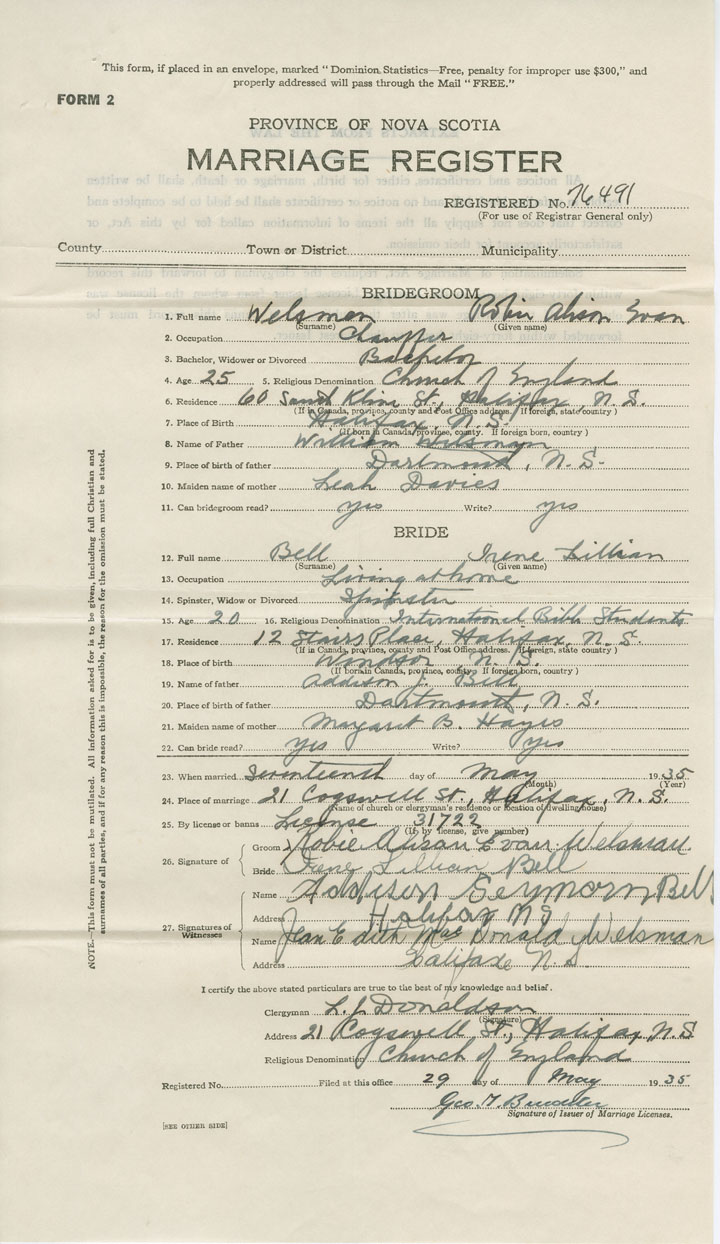 This form, if placed in an envelope, marked "Dominion Statistics—Free, penalty for improper use $300," and
properly addressed will pass through the Mail "FREE."
FORM 2
PROVINCE OF NOVA SCOTIA
MARRIAGE REGISTER
REGISTERED No. 76491
(For use of Registrar General only)
County Town or District Municipality
BRIDEGROOM
1. Full name Welsman Robie Alison Evan
(Surname) (Given name)
2. Occupation Chauffer
3. Bachelor, Widower or Divorced Bachelor
4. Age 25 5. Religious Denomination Church of England
6. Residence 60 St., Halifax, N. S.
(If in Canada, province, county and Post Office address. If foreign, state country)
7. Place of Birth Halifax, N. S.
(If born in Canada, province, county. If foreign born, country)
8. Name of Father William Welsman
9. Place of birth of father Dartmouth, N. S.
10. Maiden name of mother Leah Davies
11. Can bridegroom read? yes Write? yes
BRIDE
12. Full name Bell Irene Lillian
(Surname) (Given name)
13. Occupation Living at home
14. Spinster, Widow or Divorced Spinster
15. Age 20 16. Religious Denomination International Bible Students
17. Residence 12 Stairs Place, Halifax, N. S.
(If in Canada, province, county and Post Office address. If foreign, state country)
18. Place of birth Windsor, N. S.
(If born in Canada, province, county If foreign born, country)
19. Name of father Addison J. Bell
20. Place of birth of father Dartmouth, N. S.
21. Maiden name of mother Margaret B. Hayes
22. Can bride read? yes Write? yes
23. When married Seventeenth day of May 1935
(Month) (Year)
24. Place of marriage 21 Cogswell St., Halifax, N. S.
(Name of church or clergyman's residence or location of dwelling house)
25. By license or banns License 31722
(If by license, give number)
26. Signature of
Groom Robie Alison Evan Welsman
Bride Irene Lillian Bell
27. Signatures of Witnesses
Name Addison Seymorn Bell
Address Halifax NS
Name Jean Edith MacDonald Welsman
Address Halifax N. S.
I certify the above stated particulars are true to the best of my knowledge and belief.
Clergyman L. J. Donaldson
(Signature)
Address 21 Cogswell St., Halifax, N. S
Religious Denomination Church of England
Registered No. Filed at this office 29 day of May 1935
Geo. T.
Signature of Issuer of Marriage Licenses.
[SEE OTHER SIDE]
NOTE.—This form must not be mutilated. All information asked for is to be given, including full Christian and
surnames of all parties, and if for any reason this is impossible, the reason for the omission must be stated.